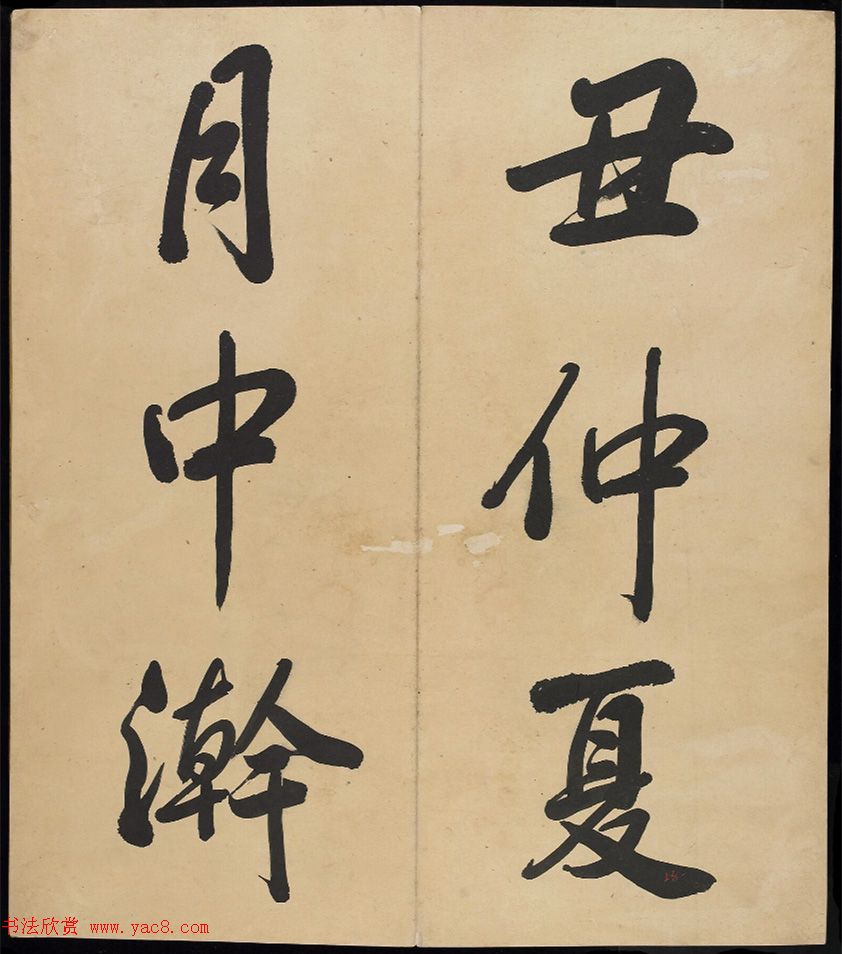 丑仲夏
月中澣
书法欣赏 www.yac8.com